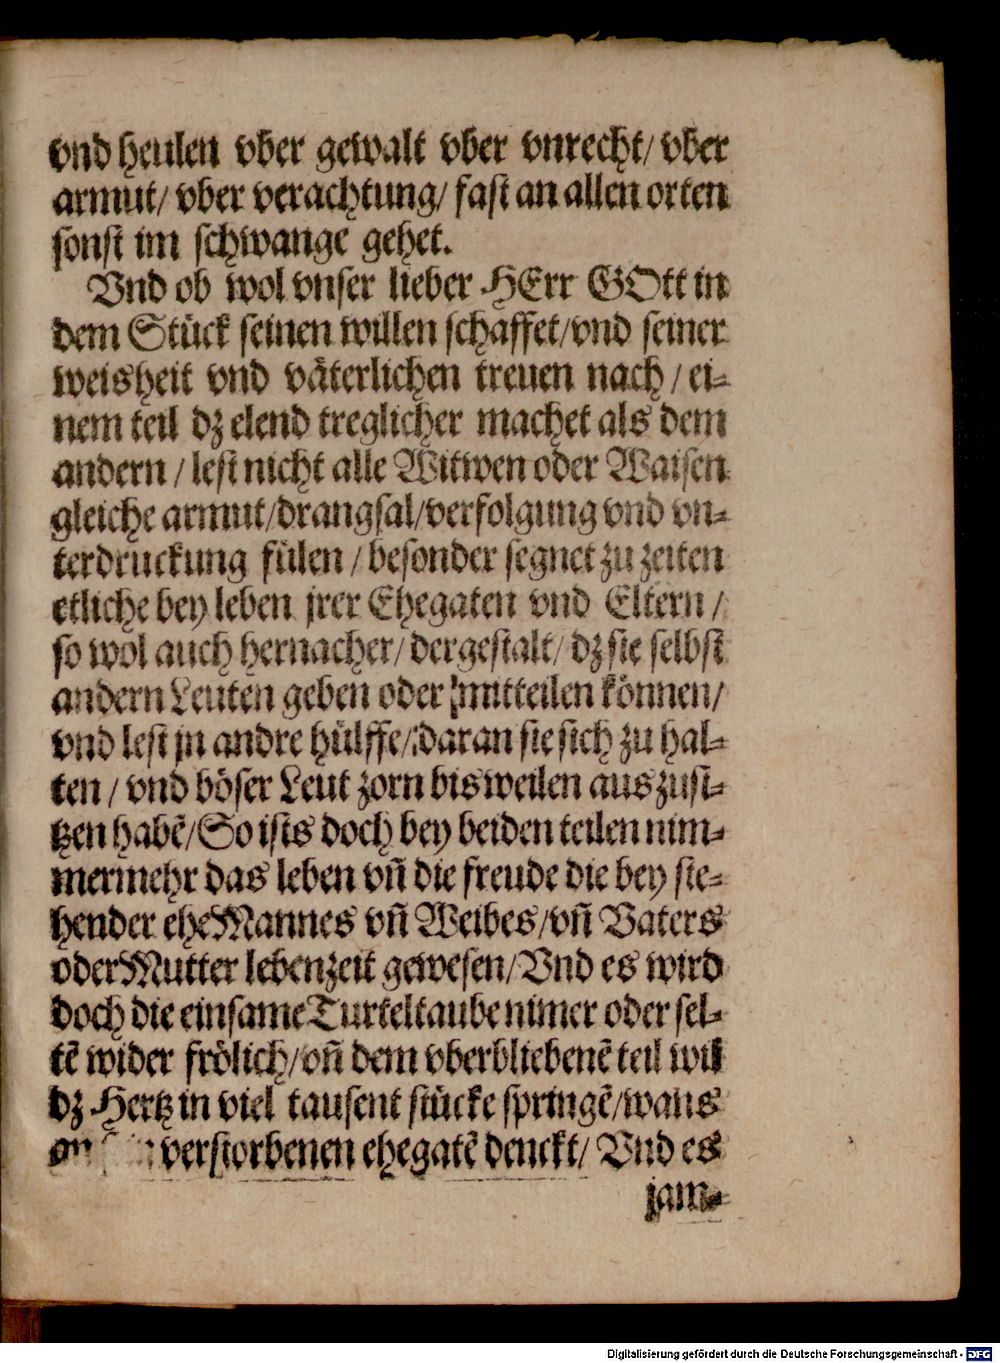 vnd heulen vber gewalt vber vnrecht/ vber
armut/ vber verachtung/ fast an allen orten
sonst im schwange gehet.
Vnd ob wol vnser lieber HErr GOtt in
dem Stück seinen willen schaffet/vnd seiner
weisheit vnd väterlichen treuen nach/ ei⸗
nem teil dz elend treglicher machet als dem
andern / lest nicht alle Witwen oder Waisen
gleiche armut/drangsal/verfolgung vnd vn⸗
terdruckung fülen / besonder segnet zu zeiten
etliche bey leben jrer Ehegaten vnd Eltern /
so wol auch hernacher/ dergestalt/ dz sie selbst
andern Leuten geben oder mitteilen können/
vnd lest jn andre hülffe/daran sie sich zu hal⸗
ten / vnd böser Leut zorn bisweilen auszusi⸗
tzen habē/So ists doch bey beiden teilen nim⸗
mermehr das leben vñ die freude die bey ste⸗
hender ehe Mannes vñ Weibes/vñ Vaters
oder Mutter lebenzeit gewesen/Vnd es wird
doch die einsame Turteltaube nimer oder sel⸗
tē wider frölich/vñ dem vberbliebenē teil wil
dz Hertz in viel tausent stücke springē/wans
an verstorbenen ehegatē denckt/ Vnd es
jam⸗
Digitalisierung gefördert durch die Deutsche Forschungsgemeinschaft - DFG